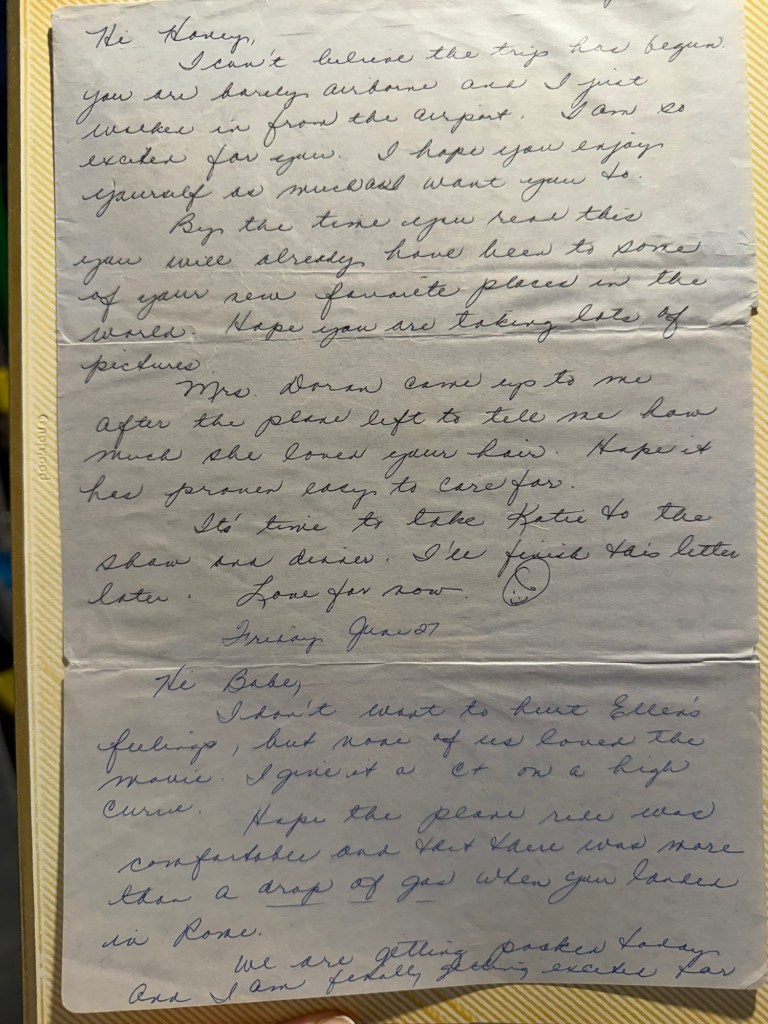 Hi Honey,
I can't believe the trip has begun.
you are barely airborne and I just
walked in from the airport. I am so
excited for you. I hope you enjoy
yourself as much as I want you to.
By the time you read this
you will already have been to some
of your new favorite places in the
world. Hope you are taking lots of
pictures.
Mrs. Doran came up to me
after the plane left to tell me how
much she loved your hair. Hope it
has proven easy to care for.
It's time to take Katie to the
show and dinner. I'll finish this letter
later. Love for now.
Friday June 27
Hi Babe,
I don't want to hurt Ellen's
feelings, but none of us loved the
movie. I give it a C+ on a high
curve.
Hope the plane ride was
comfortable and that there was more
than a drop of gas when you landed
in Rome.
We are getting packed today
and I am finally getting excited for